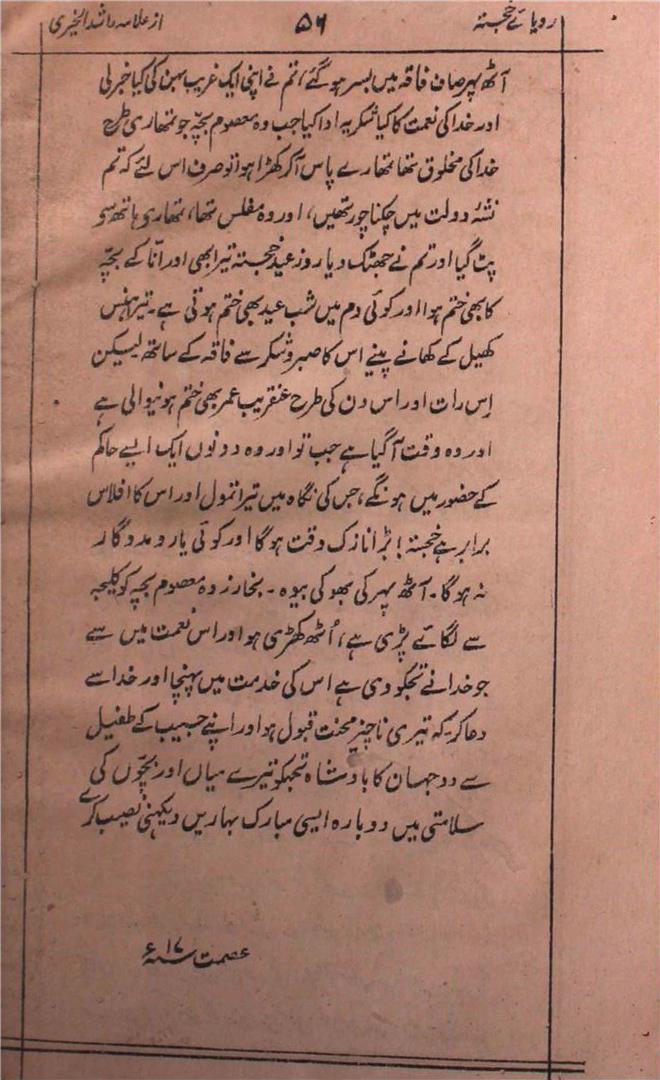 رویائے خجستہ ۵۶ از علامہ راشد الخیری
آٹھ پہر صاف فاقہ میں بسر ہو گئے، تم نے اپنی ایک غریب بہن کی کیا خبر لی
اور خدا کی نعمت کا کیا شکریہ ادا کیا جب وہ معصوم بچہ جو تمھاری طرح
خدا کی مخلوق تھا تمھارے پاس آکر کھڑا ہوا تو صرف اس لئے کہ تم
نشۂ دولت میں چکنا چور تھیں، اور وہ مفلس تھا، تمھاری ہاتھ سی
پٹ گیا اور تم نے جھٹک دیا روز عید خجستہ تیرا بھی اور انّا کے بچّہ
کا بھی ختم ہوا اور کوئی دم میں شب عید بھی ختم ہوتی ہے۔ تیرا ہنس
کھیل کے کھانے پینے اس کا صبر و شکر سے فاقہ کے ساتھ لیکن
اِس رات اور اس دن کی طرح عنقریب عمر بھی ختم ہونیوالی ہے
اور وہ وقت آگیا ہے جب تو اور وہ دونوں ایک ایسے حاکم
کے حضور میں ہونگے، جس کی نگاہ میں تیرا تمول اور اس کا افلاس
برابر ہے خجستہ! بڑا نازک وقت ہوگا اور کوئی یار و مددگار
نہ ہوگا۔ آٹھ پہر کی بھوکی بیوہ۔ بخار زدہ معصوم بچہ کو کلیجہ
سے لگائے پڑی ہے، اُٹھ کھڑی ہو اور اس نعمت میں سے
جو خدا نے تجکو دی ہے اس کی خدمت میں پہنچا اور خدا سے
دعا کر کہ تیری ناچیز محنت قبول ہو اور اپنے حبیب کے طفیل
سے دو جہان کا بادشاہ تجکو تیرے میاں اور بچّوں کی
سلامتی میں دوبارہ ایسی مبارک بہاریں دیکھنی نصیب کرے
عصمت سنہ ۱۷ء